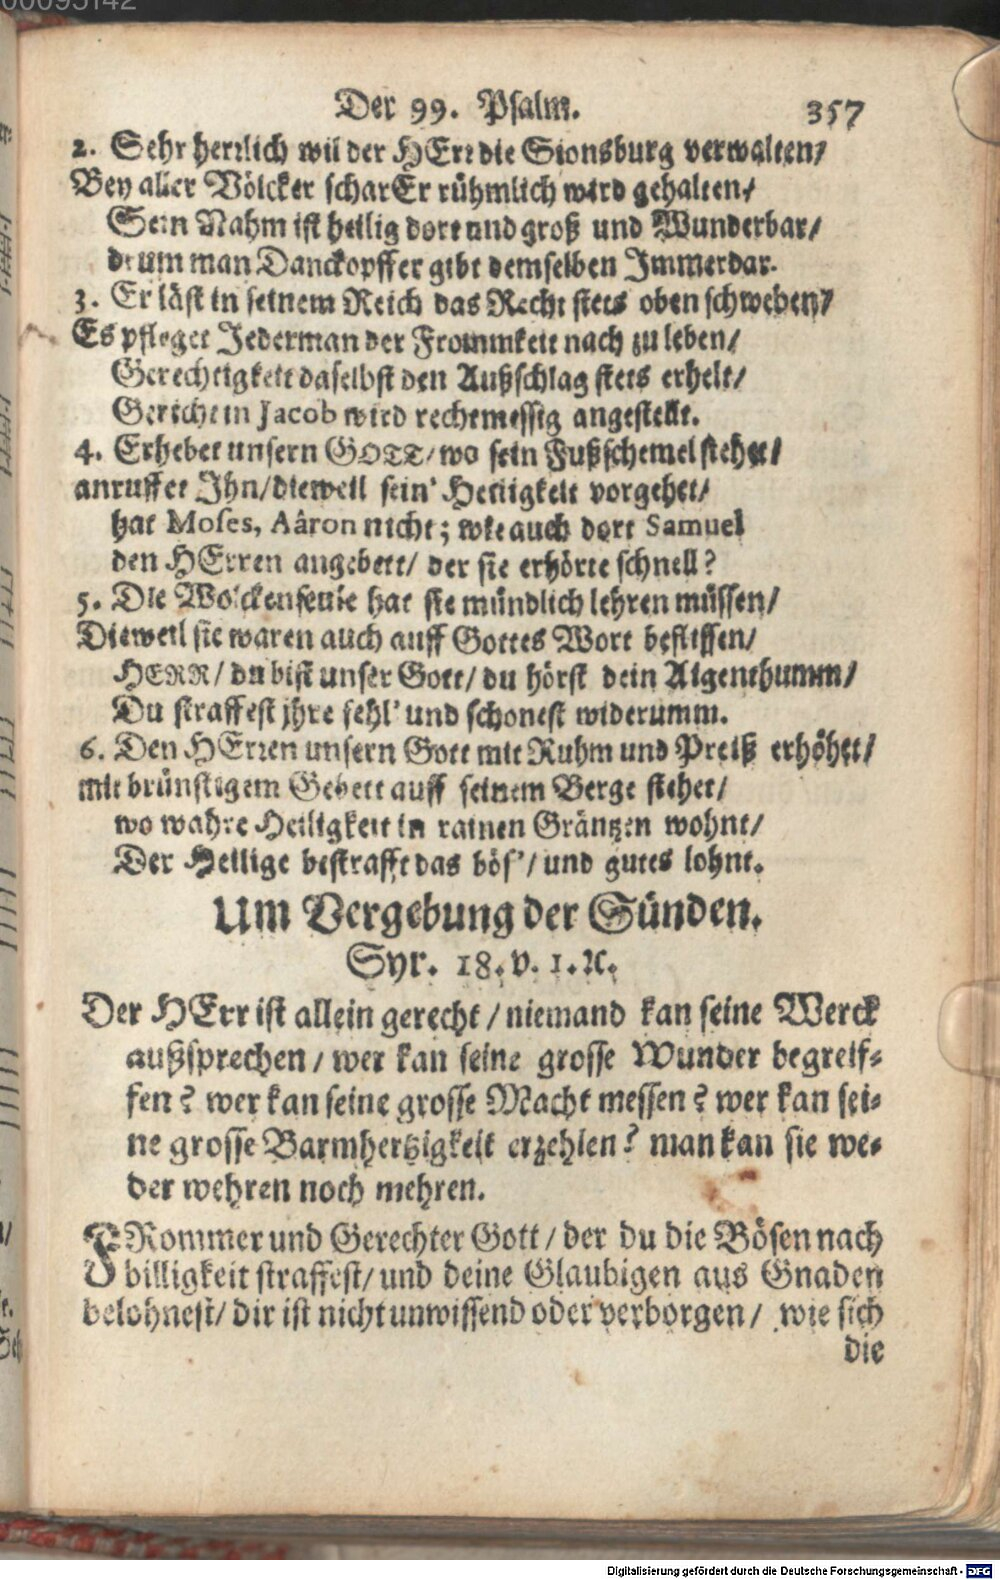 Der 99. Psalm. 357
2. Sehr herrlich wil der HErr die Sionsburg verwalten/
Bey aller Völcker schar Er rühmlich wird gehalten/
Sein Nahm ist heilig dort und groß und Wunderbar/
drum man Danckopffer gibt demselben Immerdar.
3. Er läst in seinem Reich das Recht stets oben schweben/
Es pfleget Jederman der Frommkeit nach zu leben/
Gerechtigkeit daselbst den Außschlag stets erhelt/
Gericht in Jacob wird rechtmessig angestellt.
4. Erhebet unsern GOTT/ wo sein Fußschemel stehet/
anruffet Ihn/ dieweil sein' Heiligkeit vorgehet/
hat Moses, Aâron nicht; wie auch dort Samuel
den HErren angebett/ der sie erhörte schnell?
5. Die Wolckenseule hat sie mündlich lehren müssen/
Dieweil sie waren auch auff Gottes Wort beflissen/
HERR/ du bist unser Gott/ du hörst dein Aigenthumm/
Du straffest jhre fehl' und schonest widerumm.
6. Den HErren unsern Gott mit Ruhm und Preiß erhöhet/
mit brünstigem Gebett auff seinem Berge stehet/
wo wahre Heiligkeit in rainen Gräntzen wohnt/
Der Heilige bestrafft das bös'/ und gutes lohnt.
Um Vergebung der Sünden.
Syr. 18. v. 1. ꝛc.
Der HErr ist allein gerecht / niemand kan seine Werck
außsprechen / wer kan seine grosse Wunder begreif-
fen? wer kan seine grosse Macht messen? wer kan sei-
ne grosse Barmhertzigkeit erzehlen? man kan sie we-
der wehren noch mehren.
FRommer und Gerechter Gott / der du die Bösen nach
billigkeit straffest/ und deine Glaubigen aus Gnaden
belohnest/ dir ist nicht unwissend oder verborgen/ wie sich
die
Digitalisierung gefördert durch die Deutsche Forschungsgemeinschaft - DFG